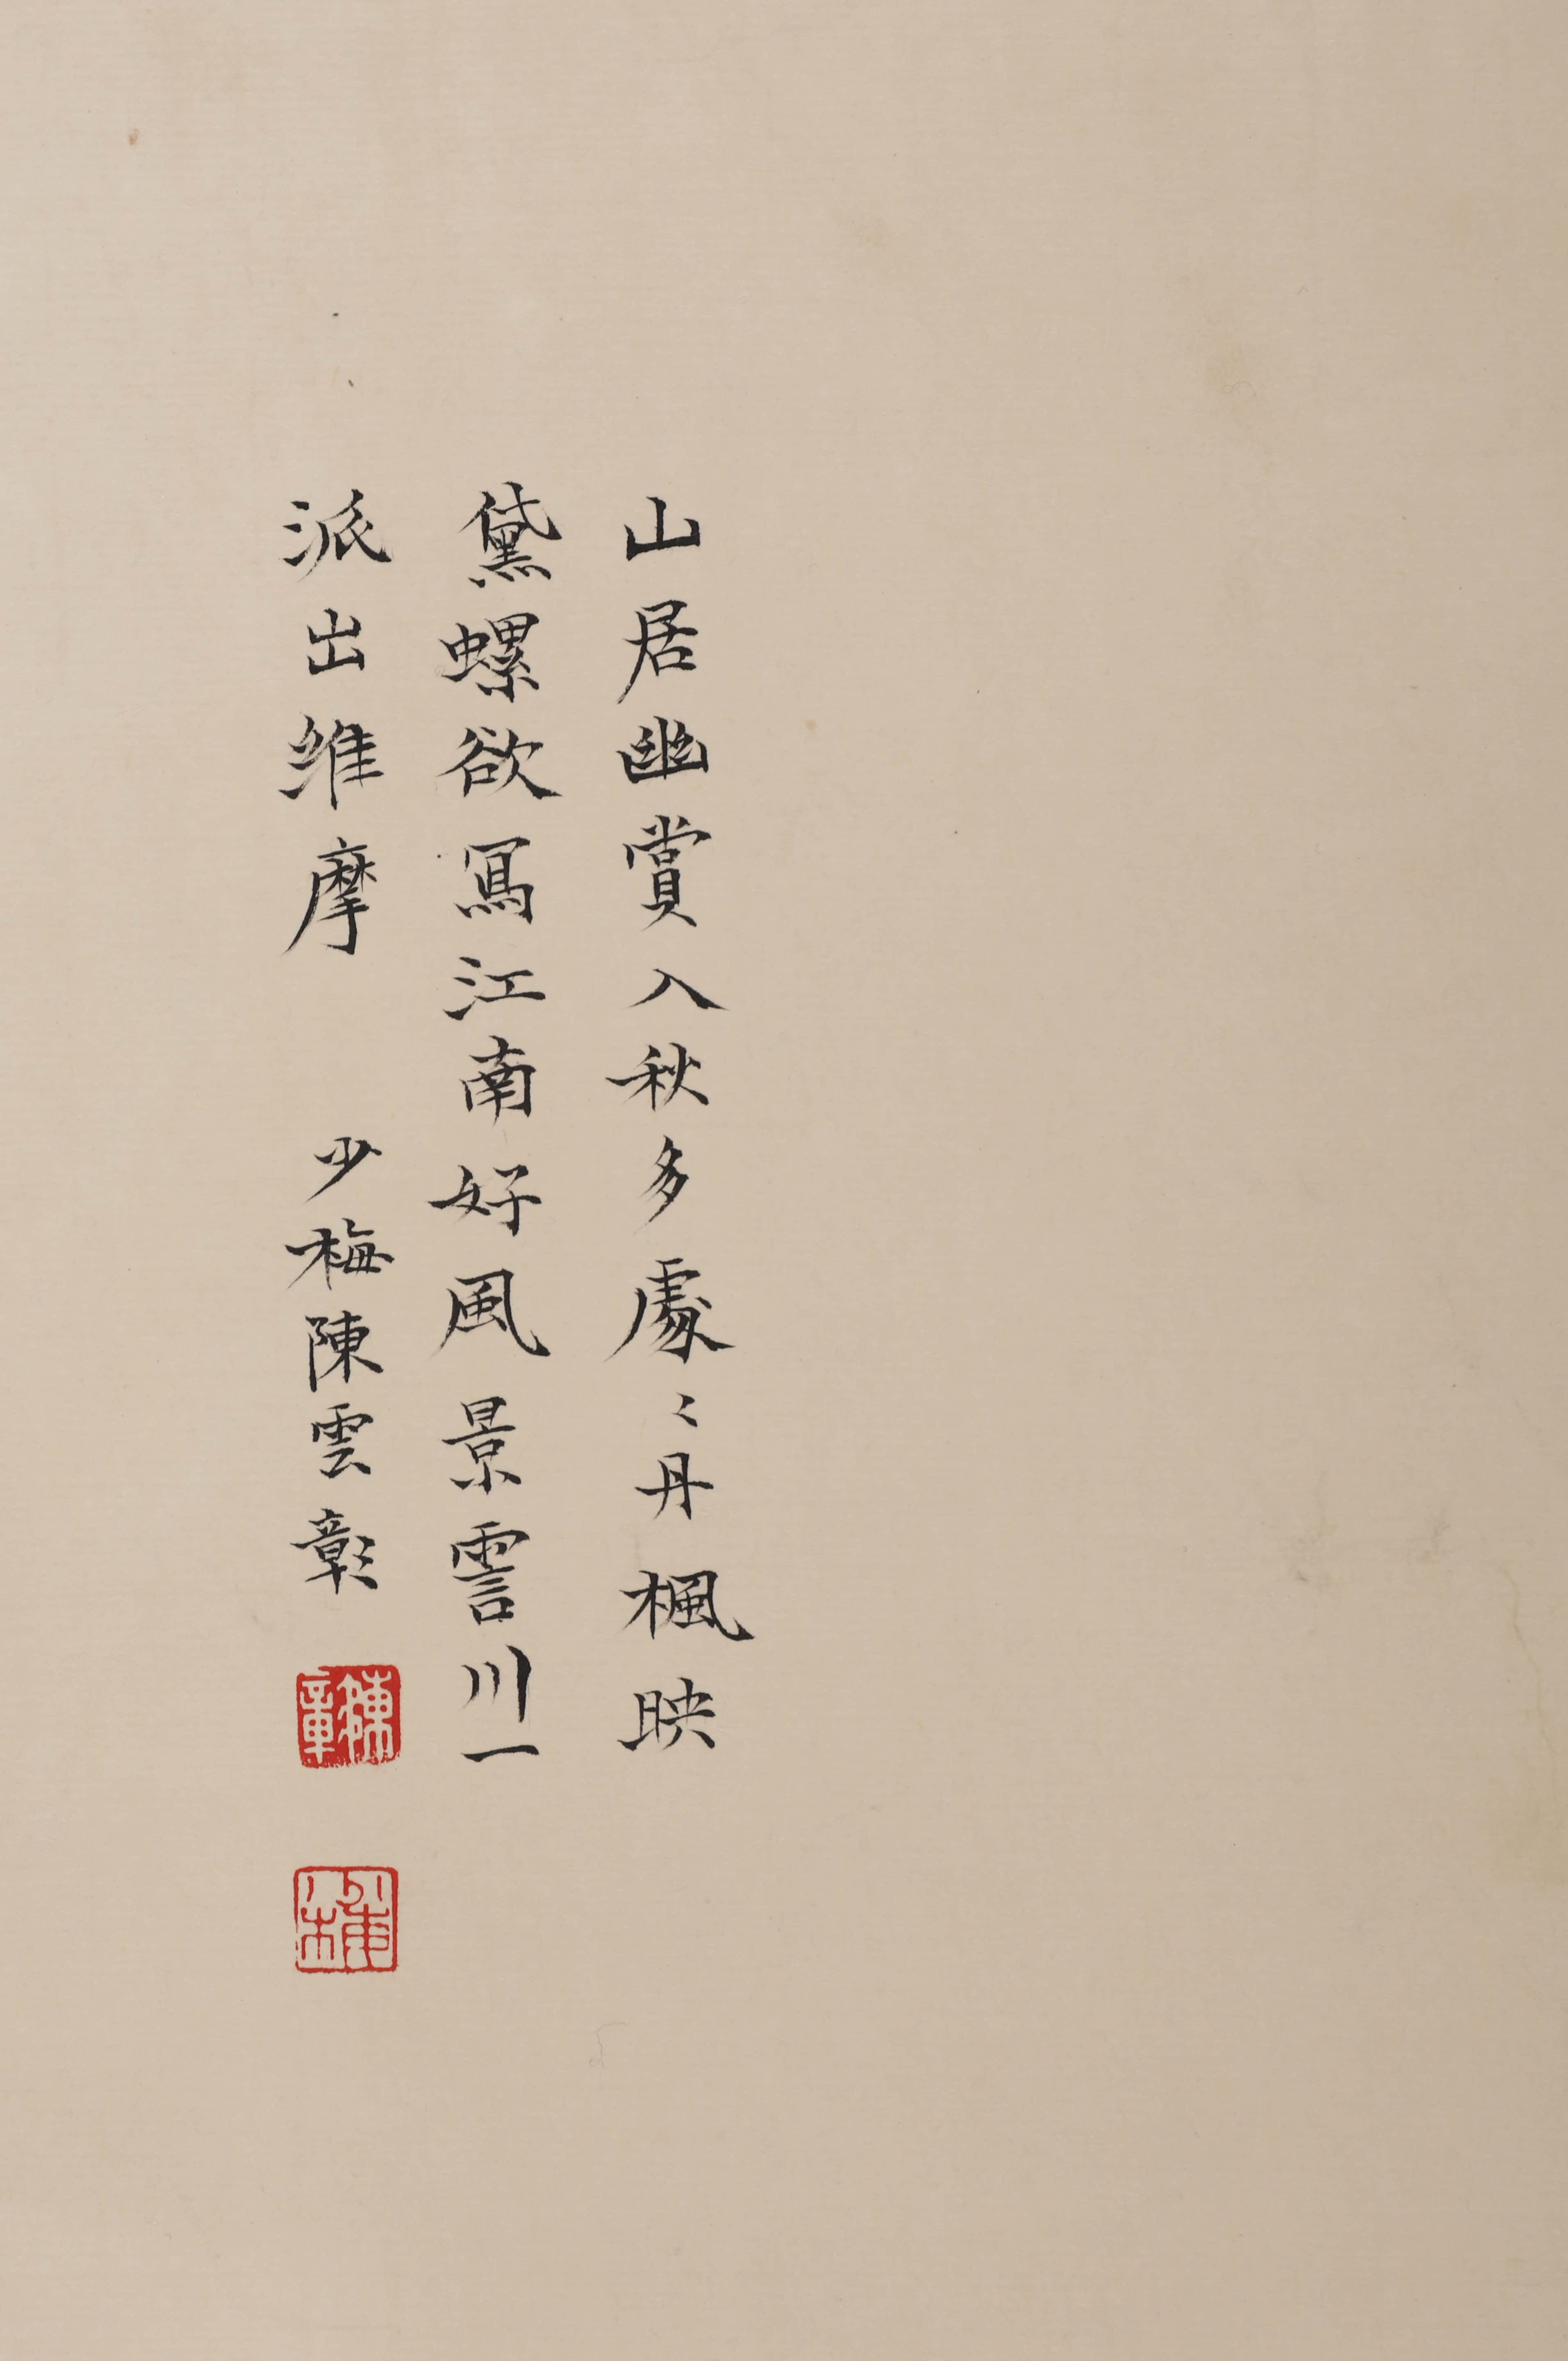 山居幽賞入秋多處〻丹楓映
黛螺欲寫江南好風景霅川一
派出維摩 少梅陳雲彰
陳
章